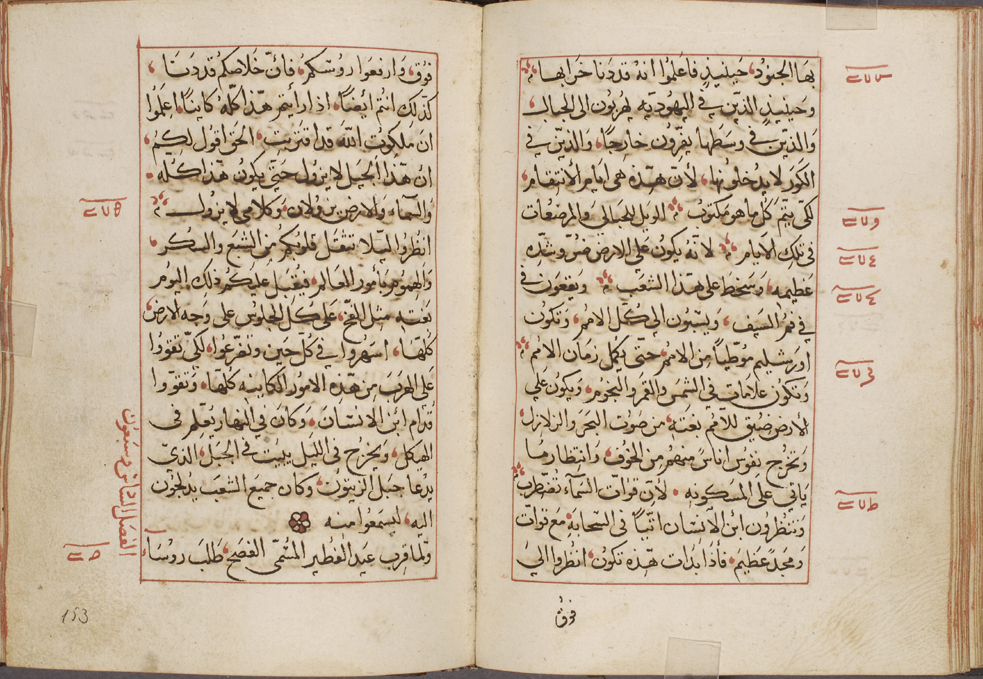 بها الجنود حينيذٍ فاعلموا انه قد دنا خرابها
وحينيذٍ الذين في اليهودية يهربون الى الجبال
والذين في وسطها يفرون خارجًا والذين في
الكور لا يدخلونها لان هذه هى ايام الانتقام
لكى يتم كل ما هو مكتوب الويل للحبالى والمرضعات
فى تلك الايام لانه يكون على الارض ضر وشده
عظيمه وسخط على هذا الشعب ويقعون في
في فم السيف ويسبون الى كل الامم وتكون
اورشليم موطيًا من الامم حتى يكمل زمان الامم
وتكون علامات فى الشمس والقمر والنجوم ويكون على
الارض ضيق للامم بغته من صوت البحر والزلازل
وتخرج نفوس اناس منهم من الخوف وانتظار ما
ياتي على المسكونه لان قوات السماء تضطرب
وينتظرون ابن الانسان اتيًا فى السحابة مع قوات
ومجد عظيم فاذا بدات هذه تكون انظروا الى
فوق
فوق وارفعوا روسكم فان خلاصكم قد دنا
كذلك انتم ايضًا اذا رايتم هذا كله كاينًا اعلموا
ان ملكوت الله قد اقتربت الحق اقول لكم
ان هذا الجيل لا يزول حتى يكون هذا كله
والسماء والارض يزولان وكلامي لا يزول
انظروا ليلا تثقل قلوبكم من الشبع والسكر
والهموم بامور العالم فيقبل عليكم ذلك اليوم
بغته مثل الفخ على كل الجلوس على وجه الارض
كلها اسهروا في كل حين وتضرعوا لكى تقووا
على الهرب من هذه الامور الكاينه كلها وتقووا
قدام ابن الانسان وكان في النهار يعلم فى
الهيكل ويخرج فى الليل يبيت في الجبل الذى
يدعا جبل الزيتون وكان جميع الشعب يدلجون
اليه ليسمعوا منه
ولما قرب عيد الفطير المسمى الفصح طلب روسا
الفصل الثاني وسبعون
153